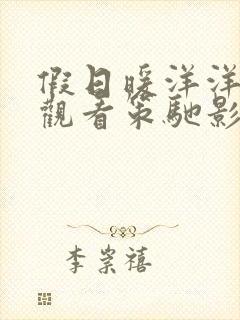 假日暖洋洋
觀看策馳影
李崇禧